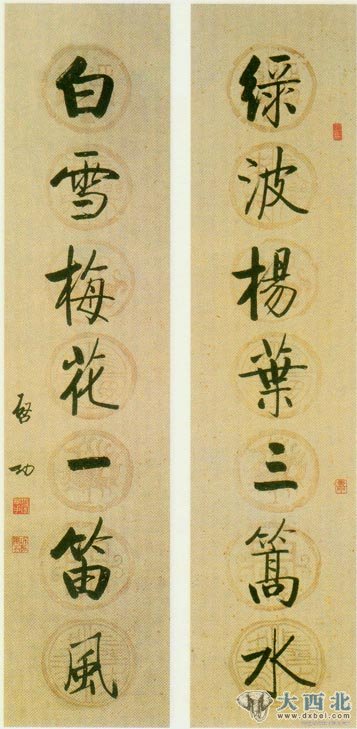 綠波楊葉三篙水
白雪梅花一笛風
啓功
大西北
www.dxbei.com